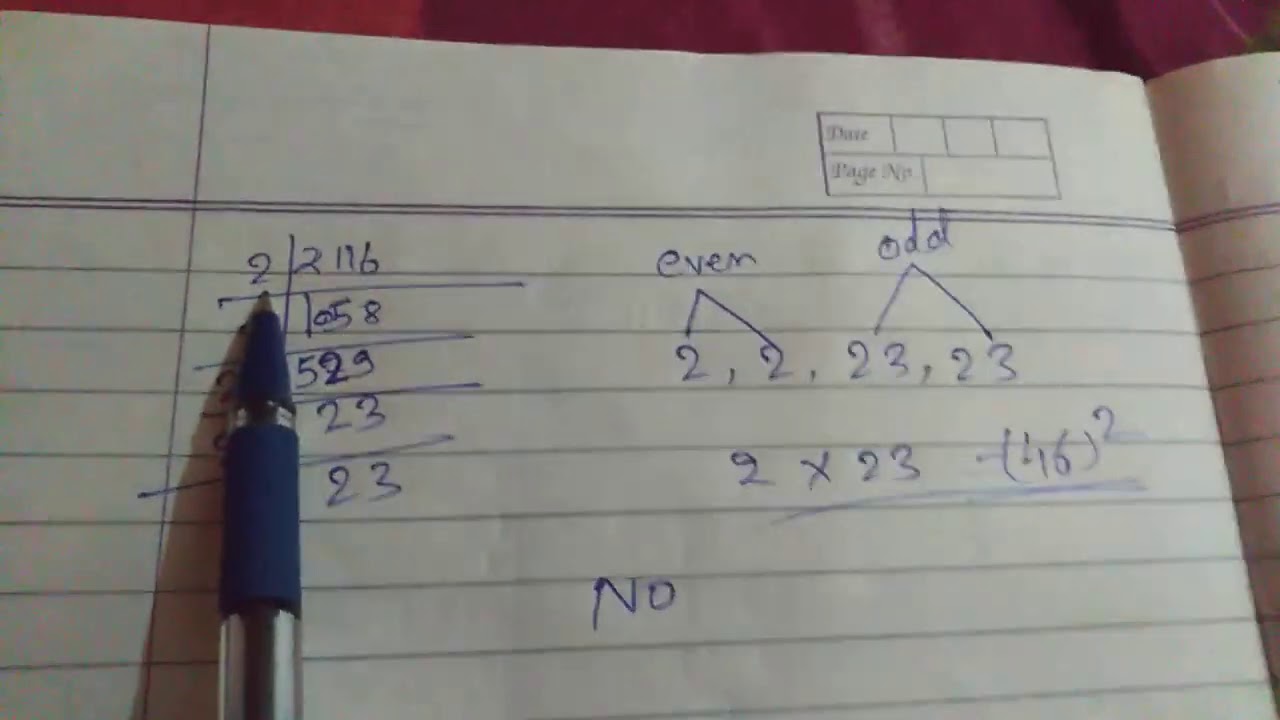 Date
Page No
2 2116
1058
529
23
23
even odd
2, 2, 23, 23
2 x 23 -(46)²
NO